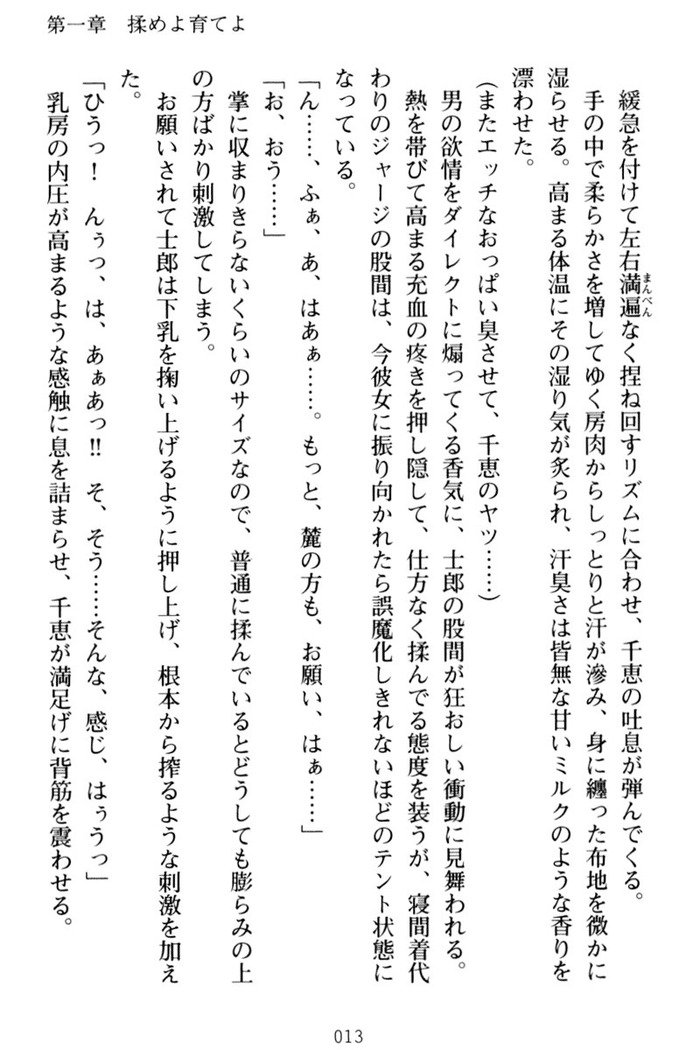 第一章　揉めよ育てよ
緩急を付けて左右満遍なく捏ね回すリズムに合わせ、千恵の吐息が弾んでくる。
まんべん
手の中で柔らかさを増してゆく房肉からしっとりと汗が滲み、身に纏った布地を微かに
湿らせる。高まる体温にその湿り気が炙られ、汗臭さは皆無な甘いミルクのような香りを
漂わせた。
（またエッチなおっぱい臭させて、千恵のヤツ……）
男の欲情をダイレクトに煽ってくる香気に、士郎の股間が狂おしい衝動に見舞われる。
熱を帯びて高まる充血の疼きを押し隠して、仕方なく揉んでる態度を装うが、寝間着代
わりのジャージの股間は、今彼女に振り向かれたら誤魔化しきれないほどのテント状態に
なっている。
「ん……、ふぁ、あ、はあぁ……。もっと、麓の方も、お願い、はぁ……」
「お、おう……」
掌に収まりきらないくらいのサイズなので、普通に揉んでいるとどうしても膨らみの上
の方ばかり刺激してしまう。
お願いされて士郎は下乳を掬い上げるように押し上げ、根本から搾るような刺激を加え
た。
「ひうっ！　んぅっ、は、あぁあっ‼　そ、そう……そんな、感じ、はぅうっ」
乳房の内圧が高まるような感触に息を詰まらせ、千恵が満足げに背筋を震わせる。
013